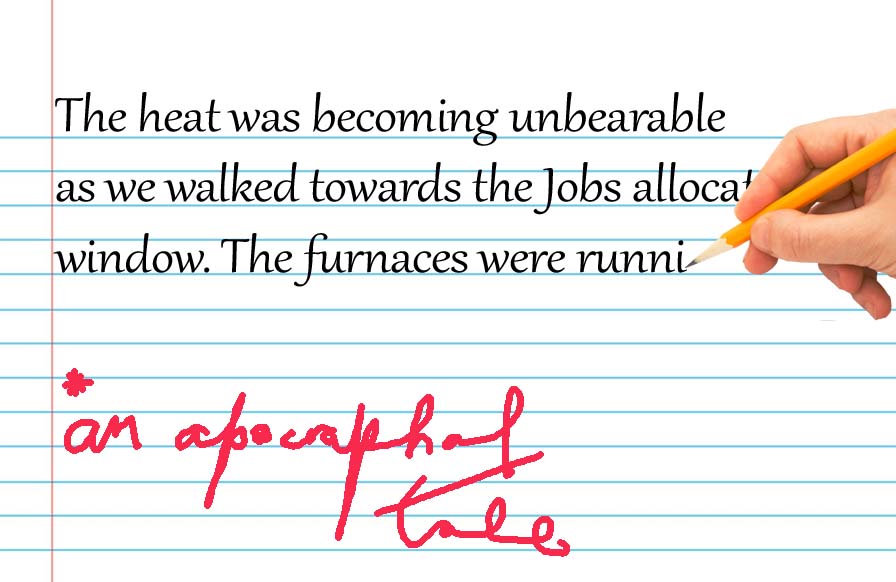 The heat was becoming unbearable
as we walked towards the Jobs allocat
window. The furnaces were runni
*
an apocraphal
tale